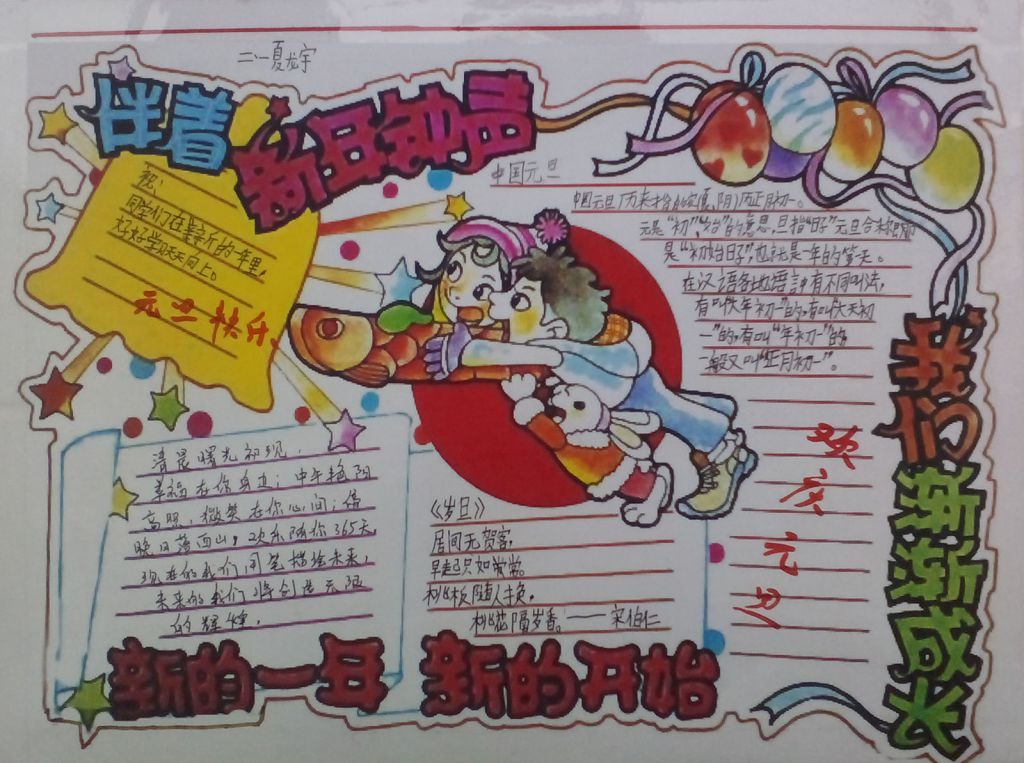 二.一夏龙宇
伴着
新年钟声
祝:
同学们在崭新的一年里,
好好学习天天向上。
元旦快乐
中国元旦
中国元旦历来指的是夏(阴)历正月初一。
元是“初”“始”的意思,旦指“日子”元旦合称即
是“初始日子”,也就是一年的第一天。
在汉语各地语言中有不同叫法,
有叫大年初一的,有叫大天初
一”的,有叫“年初一”的
一般又叫“正月初一”。
我们渐渐成长
欢庆元旦
清晨曙光初现,
幸福在你身边;中午艳阳
高照,微笑在你心间;傍
晚日落西山,欢乐陪你365天,
现在的我们用笔描绘未来,
未来的我们将创造无限
的辉煌。
《岁旦》
居间无贺客,
早起只如常。
桃板随人换,
桃花隔岁香。——宋伯仁
新的一年 新的开始